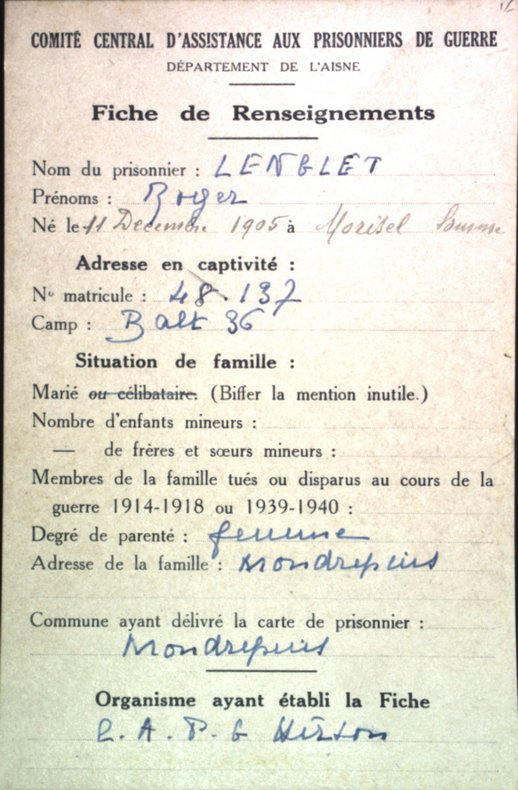 COMITÉ CENTRAL D'ASSISTANCE AUX PRISONNIERS DE GUERRE
DÉPARTEMENT DE L'AISNE
Fiche de Renseignements
Nom du prisonnier : LENGLET
Prénoms : Roger
Né le 11 Décembre 1905 à Morisel Somme
Adresse en captivité :
No matricule : 48.137
Camp : Balt 36
Situation de famille :
Marié ou célibataire. (Biffer la mention inutile.)
Nombre d'enfants mineurs :
— de frères et sœurs mineurs :
Membres de la famille tués ou disparus au cours de la
guerre 1914-1918 ou 1939-1940 :
Degré de parenté : femme
Adresse de la famille : Mondrepuis
Commune ayant délivré la carte de prisonnier :
Mondrepuis
Organisme ayant établi la Fiche
C. A. P. G Hirson